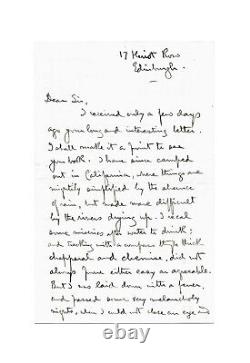 17 Heriot Row
Edinburgh.
Dear Sir,
I received only a few days
ago your long and interesting letter.
I shall make it a point to see
you both. I have since camped
out in California, where things are
mightily simplified by the absence
of rain, but made more difficult
by the rivers drying up. I recal
some miseries after water to drink;
and trecking with a compass through thick
chapperal and chemise, did not
always prove either easy or agreeable.
But I was laid down with a fever,
and passed some very melancholy
nights, when I could not close an eye and